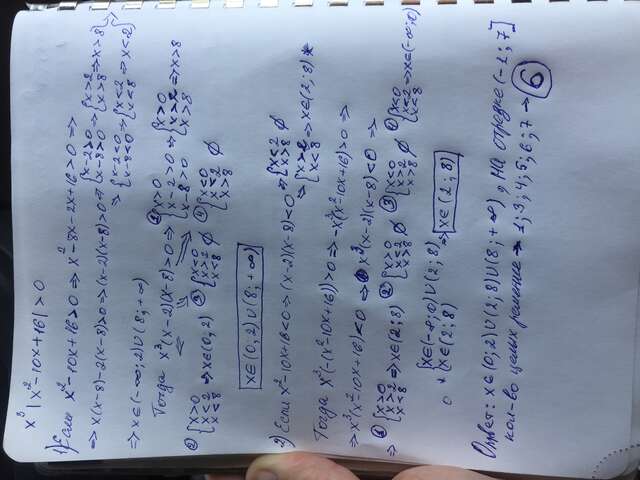 x³|x²-10x+16|>0
1) Если x²-10x+16>0 ⇒ x²-8x-2x+16>0 ⇒
⇒ x(x-8)-2(x-8)>0 ⇒ (x-2)(x-8)>0 ⇒ {x-2>0 x-8>0 ⇒ {x>2 x>8 ⇒ x>8
⇒ {x-2<0 x-8<0 ⇒ {x<2 x<8 ⇒ x<2
⇒ x∈(-∞;2)∪(8;+∞)
Тогда x³(x-2)(x-8)>0 ⇒ ① {x>0 x-2>0 x-8>0 ⇒ {x>0 x>2 x>8 ⇒ x>8
② {x>0 x<2 x<8 ⇒ x∈(0,2) ③ {x<0 x>2 x<8 ∅ ④ {x<0 x<2 x>8 ∅
x∈(0,2)∪(8;+∞)
2) Если x²-10x+16<0 ⇒ (x-2)(x-8)<0 ⇒ {x<2 x>8 ∅
⇒ {x>2 x<8 ⇒ x∈(2;8)
Тогда x³(-(x²-10x+16))>0 ⇒ -x³(x²-10x+16)>0 ⇒
⇒ x³(x²-10x+16)<0 ⇒ x³(x-2)(x-8)<0 ⇒
⇒ ① {x>0 x>2 x<8 ⇒ x∈(2;8) ② {x>0 x<2 x>8 ∅ ③ {x<0 x>2 x>8 ∅ ④ {x<0 x<2 x<8 ⇒ x∈(-∞;0)
{x∈(-∞;0)∪(2;8) x∈(2;8) ⇒ x∈(2;8)
Ответ: x∈(0;2)∪(2;8)∪(8;+∞), на отрезке (-1;7]
кол-во целых решение → 1;3;4;5;6;7 → 6